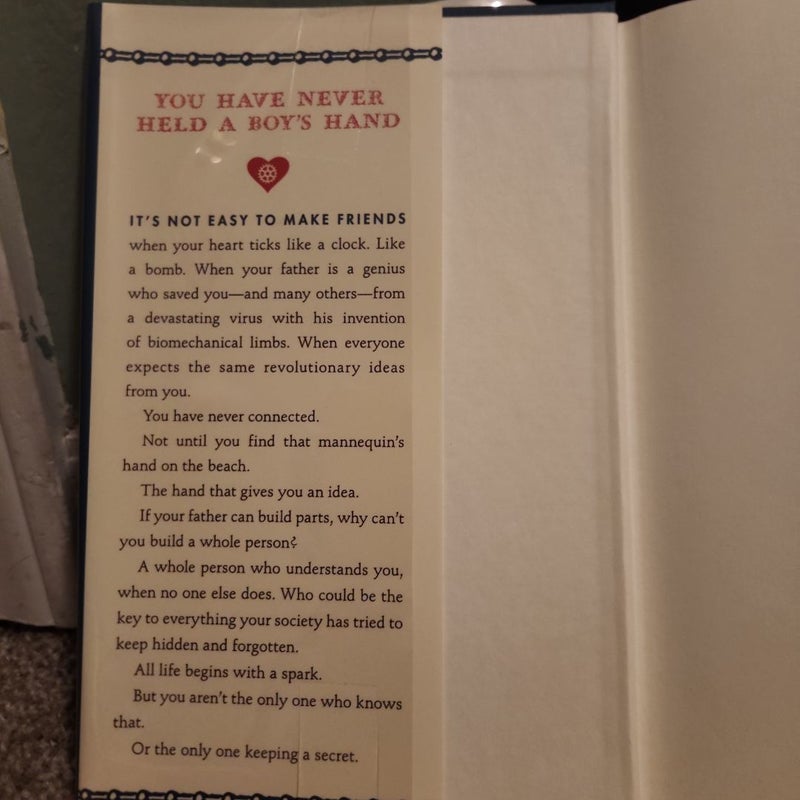 YOU HAVE NEVER
HELD A BOY'S HAND
IT'S NOT EASY TO MAKE FRIENDS
when your heart ticks like a clock. Like
a bomb. When your father is a genius
who saved you—and many others—from
a devastating virus with his invention
of biomechanical limbs. When everyone
expects the same revolutionary ideas
from you.
You have never connected.
Not until you find that mannequin's
hand on the beach.
The hand that gives you an idea.
If your father can build parts, why can't
you build a whole person?
A whole person who understands you,
when no one else does. Who could be the
key to everything your society has tried to
keep hidden and forgotten.
All life begins with a spark.
But you aren't the only one who knows
that.
Or the only one keeping a secret.